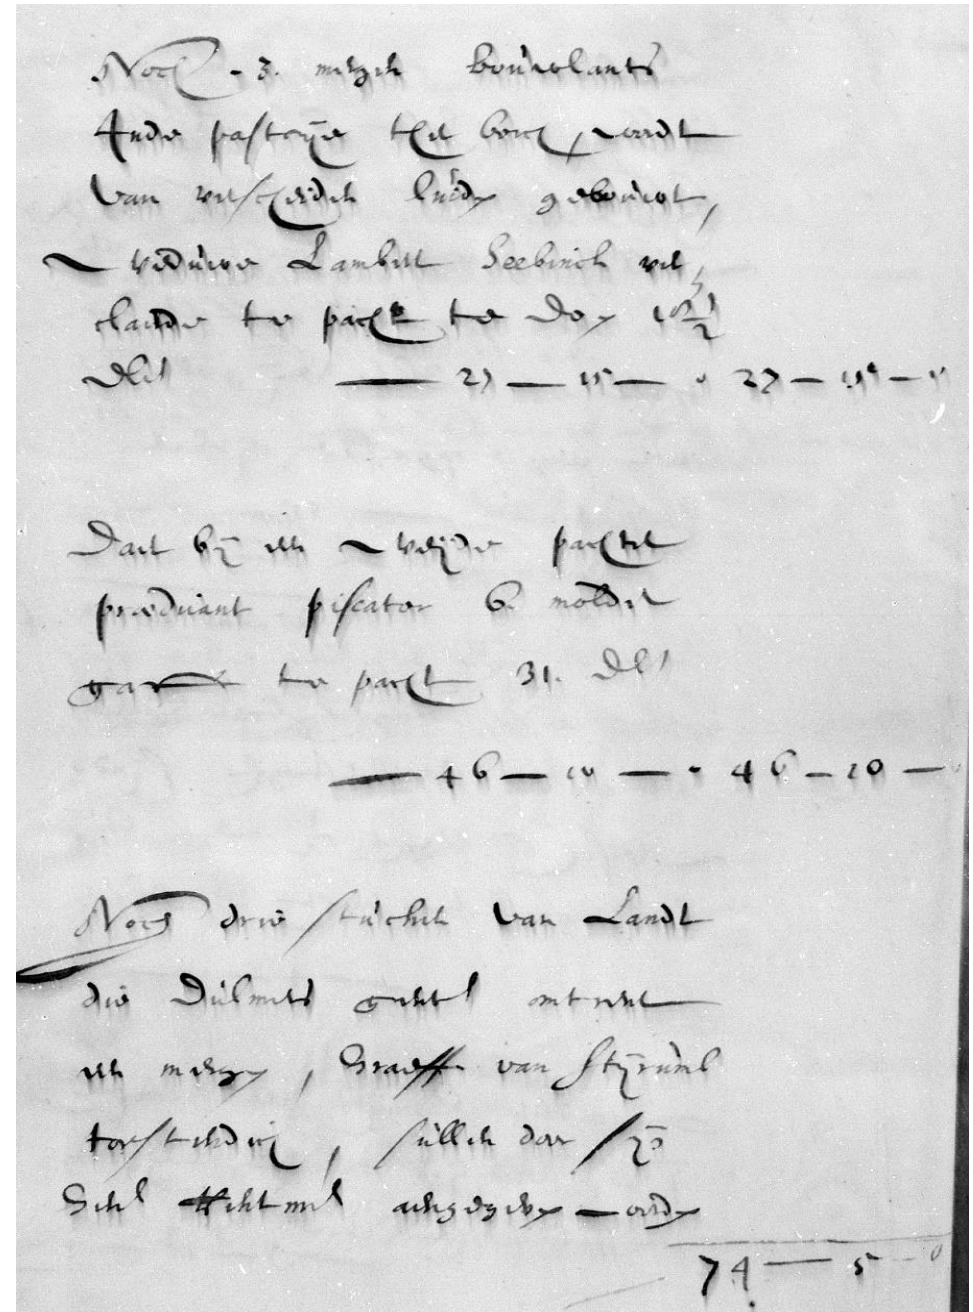 Noch 3. mergen bouwlants
Inde pastorije tho borch, wordt
van verscheiden luiden gebouwt,
Weduwe Lambert Seebinck ver
claerde te pacht te doen 18½
Dlr — 27 — 15 — 0 27 — 15 — 0
Daer bij een Weijde pachtet
predicant piscator 6. molder
garst te pacht 31. Dlr
— 46 — 10 — 0 46 — 10 —
Noch drie stucken van Landt
die Dulmers genent omtrent
een mergen, Graeff van Stijrumb
torstendich, sullen daer
aengegeven worden
74 — 5 — 0